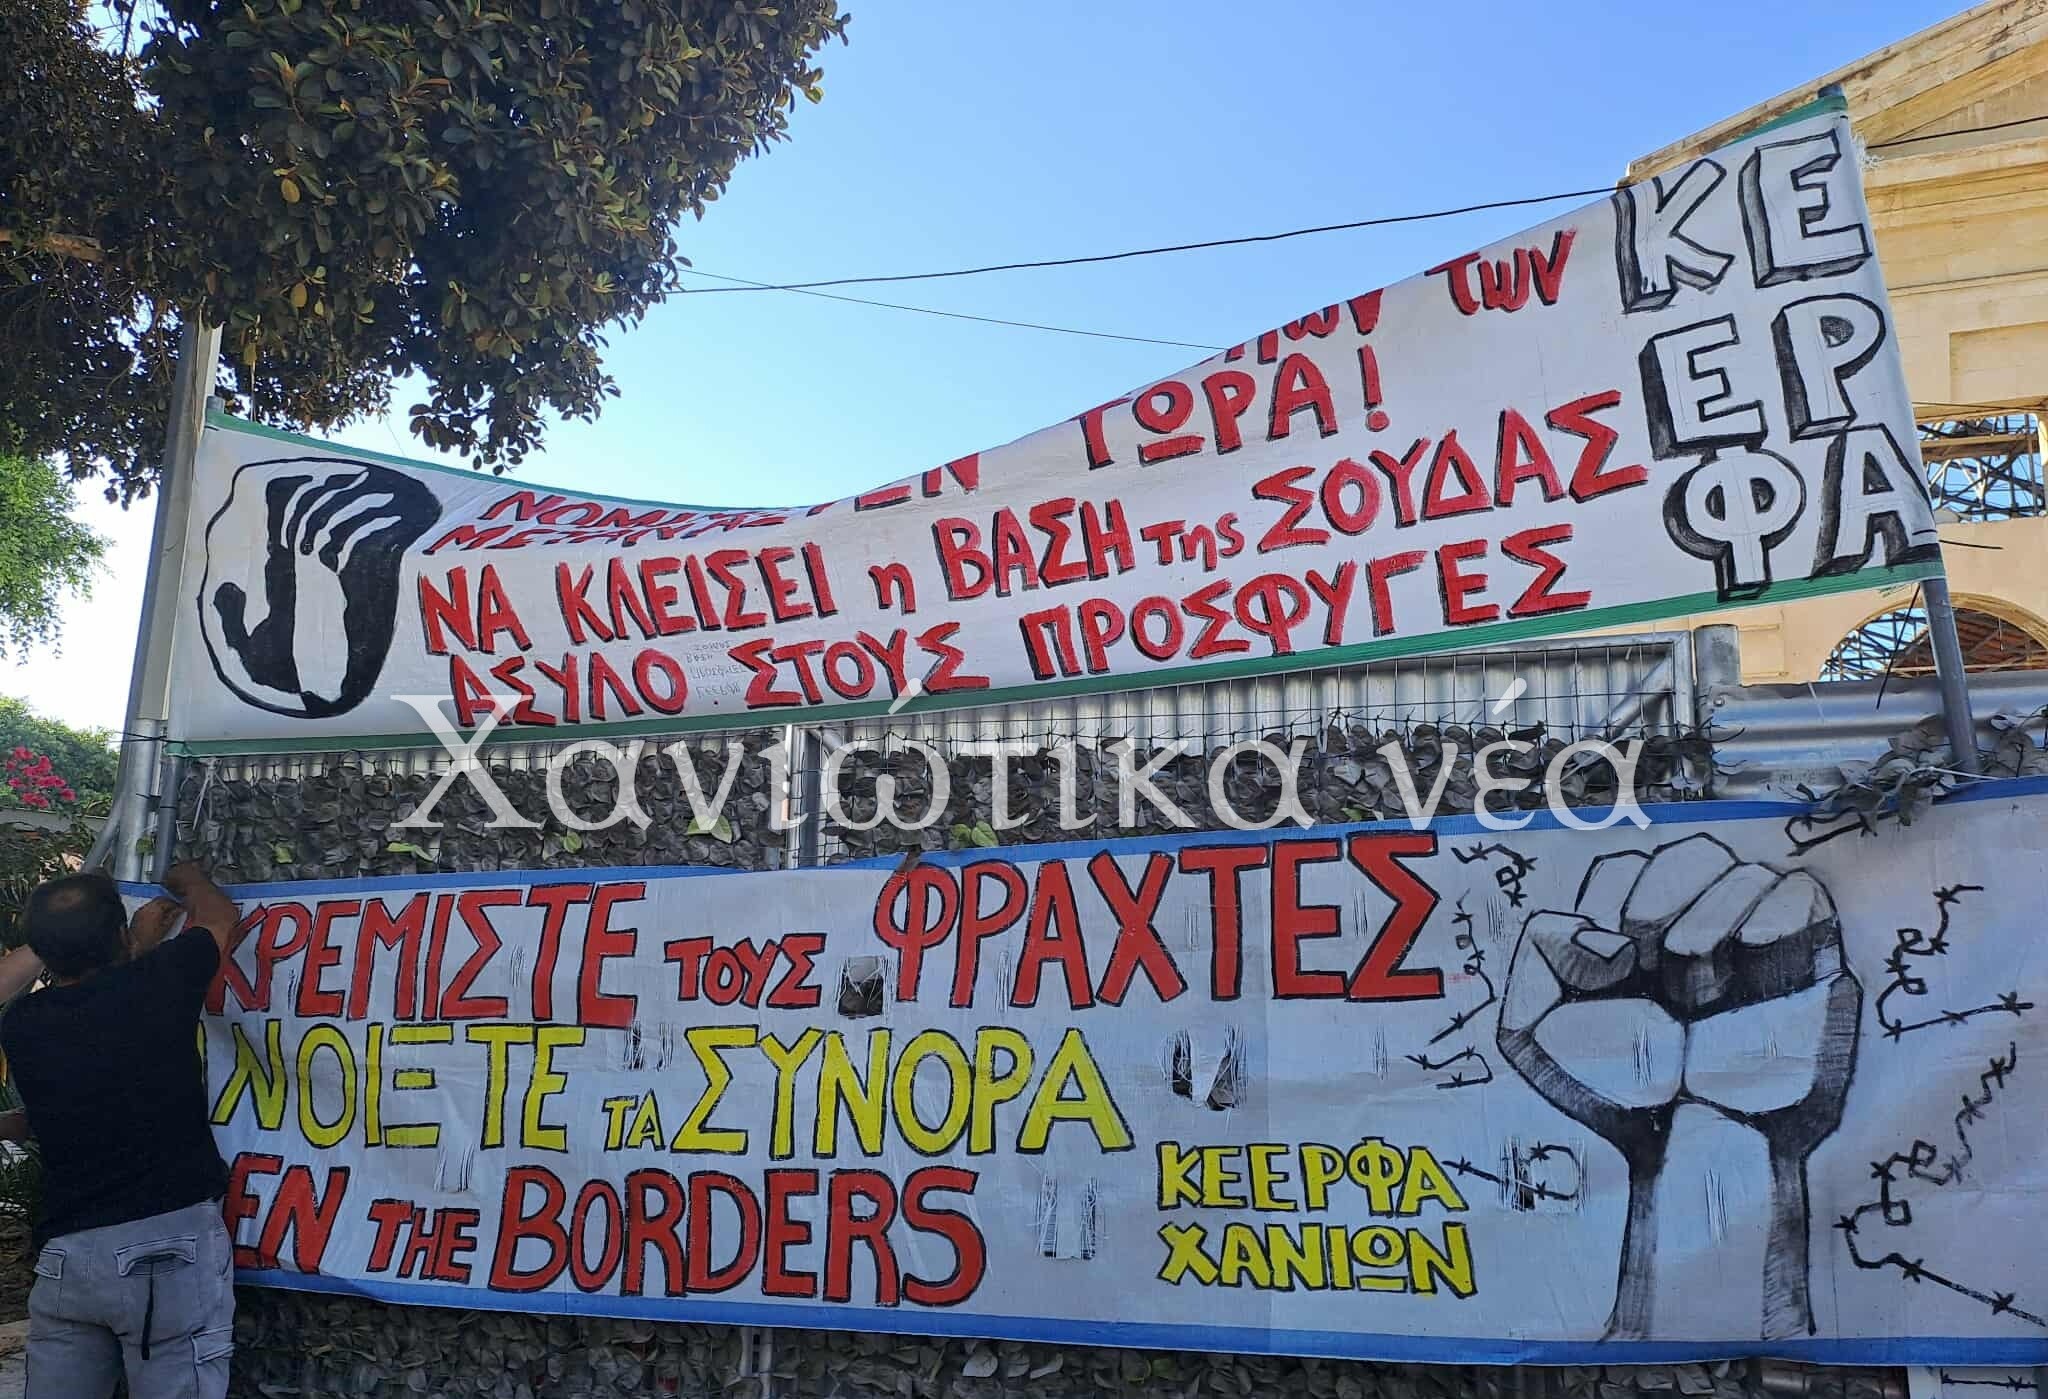 των
ΤΩΡΑ!
ΝΑ ΚΛΕΙΣΕΙ η ΒΑΣΗ της ΣΟΥΔΑΣ
ΑΣΥΛΟ ΣΤΟΥΣ ΠΡΟΣΦΥΓΕΣ
ΚΕ
ΕΡ
ΦΑ
Χανιώτικα νέα
ΚΡΕΜΙΣΤΕ ΤΟΥΣ ΦΡΑΧΤΕΣ
ΝΟΙΞΤΕ ΤΑ ΣΥΝΟΡΑ
EN THE BORDERS
ΚΕΕΡΦΑ
ΧΑΝΙΩΝ